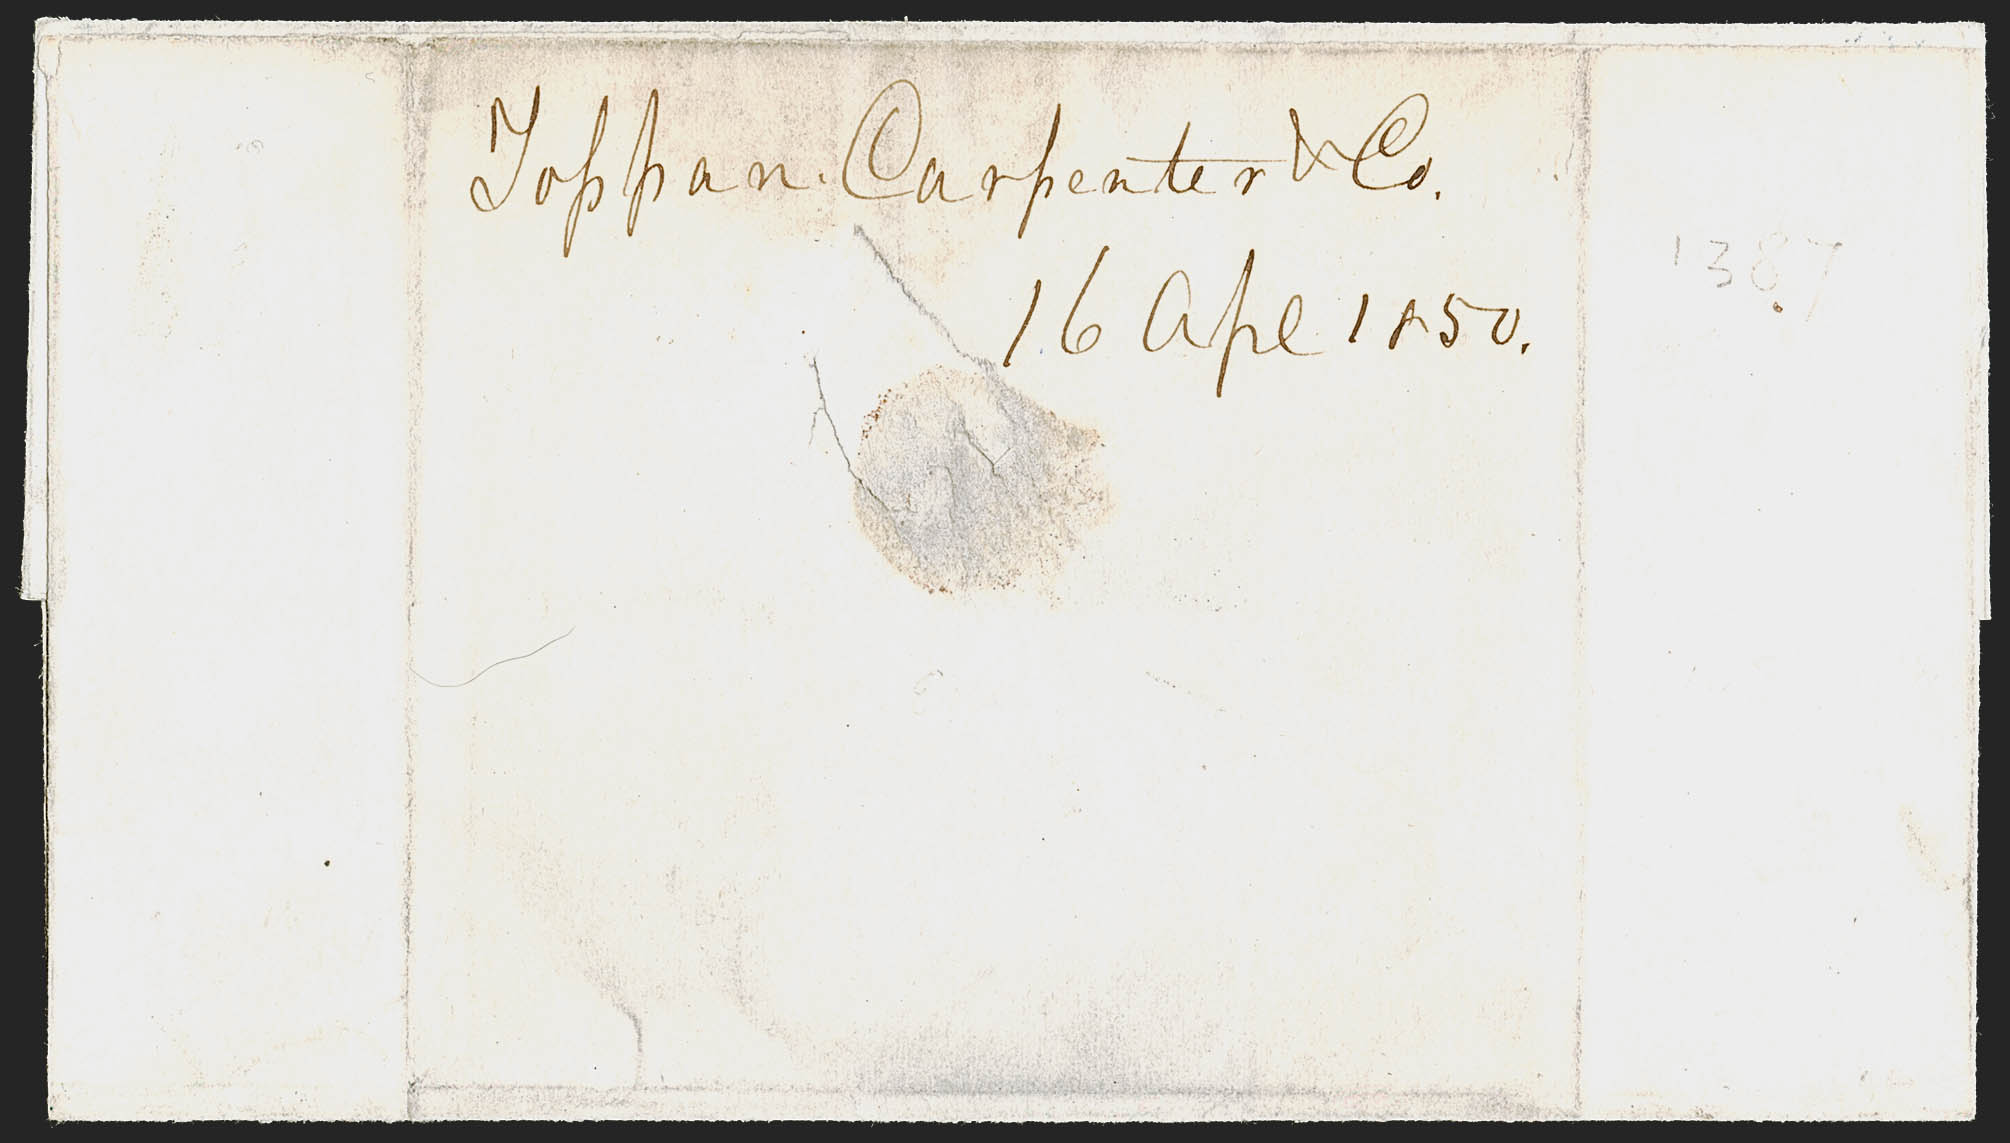 Toppan. Carpenter & Co.
16 Apl 1850.
1387